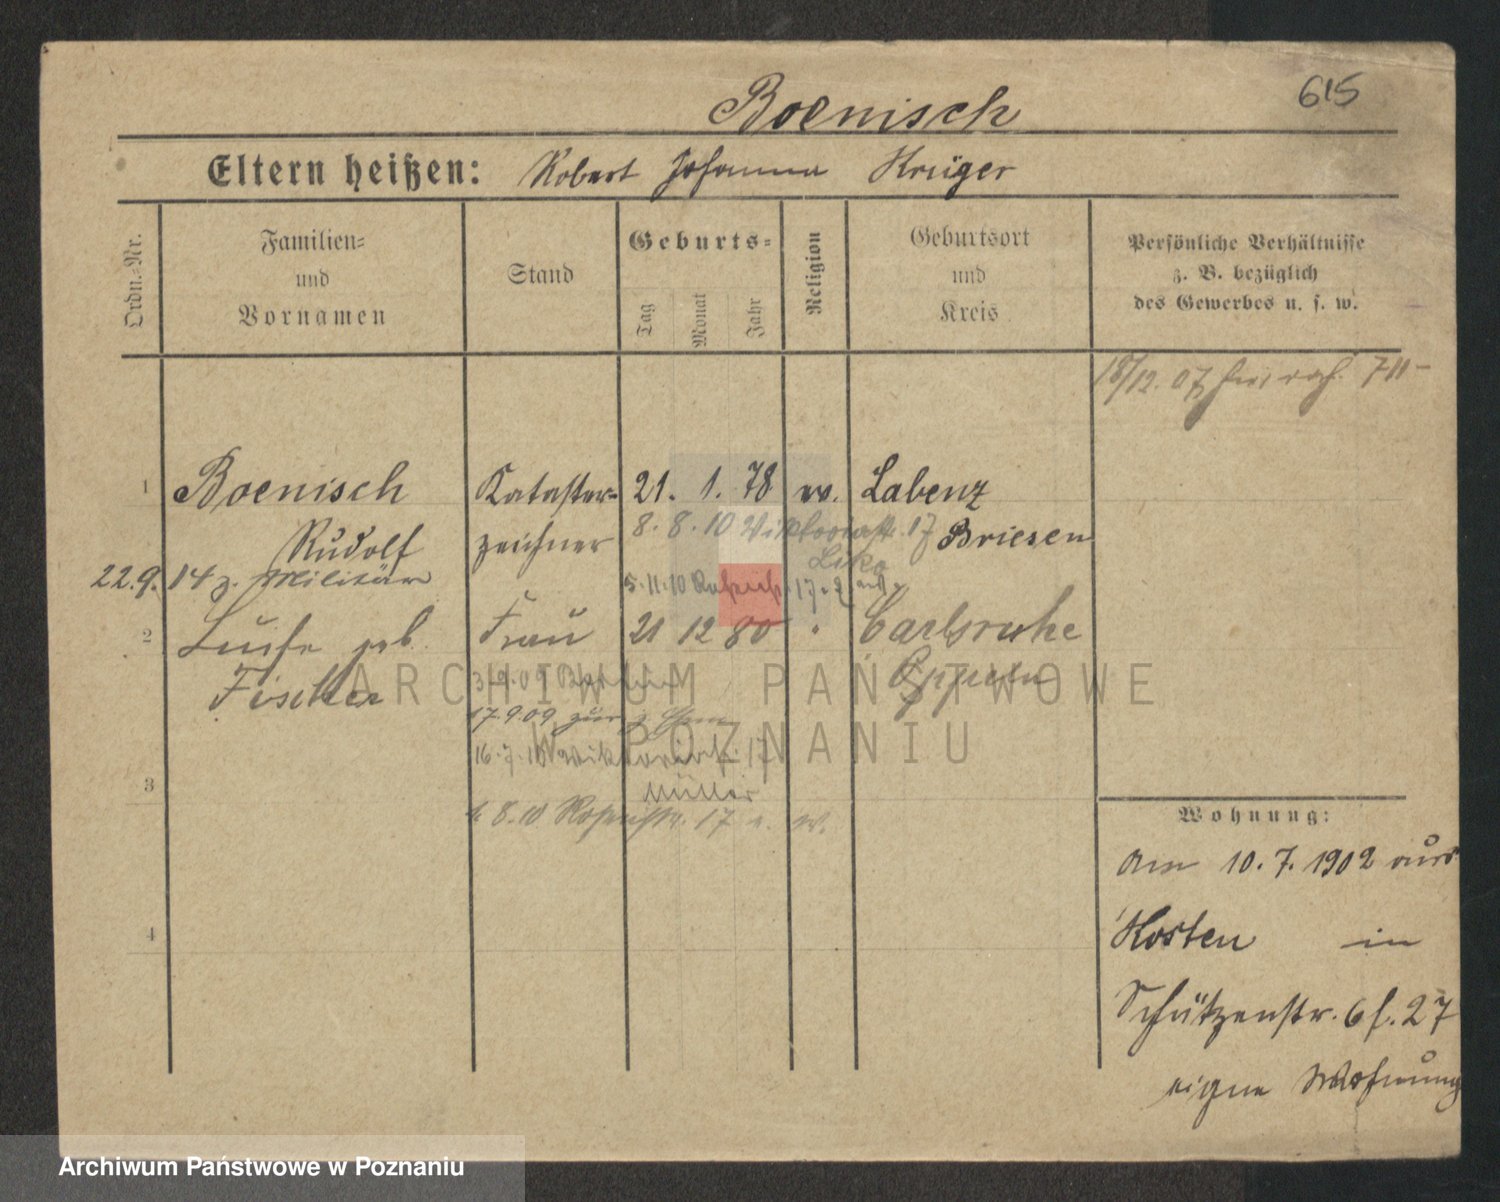 615
Boenisch
Eltern heißen: Robert Johanna Krüger
Ordn.-Nr.
Familien-
und
Vornamen
Stand
Geburts-
Tag
Monat
Jahr
Religion
Geburtsort
und
Kreis
Persönliche Verhältnisse
z. B. bezüglich
des Gewerbes u. s. w.
18/12. 07
1 Boenisch Kataster- 21. 1. 78 ev. Labenz
Rudolf zeichner 8. 8. 10 Viktoriastr. 17 Briesen
22.9. 14 z. Militär 5. 11. 10
2 Luise geb. Frau 21 12 80 " Carlsruhe
Fischer Oppeln
3.9.09
17.9.09 zur
16.7.10 Viktoriastr. 17
Müller
3
8.10 17
4
Wohnung:
Am 10. 7. 1902 aus
Kosten in
Schützenstr. 6 f. 27
eigne Wohnung
ARCHIWUM PAŃSTWOWE
W POZNANIU
Archiwum Państwowe w Poznaniu